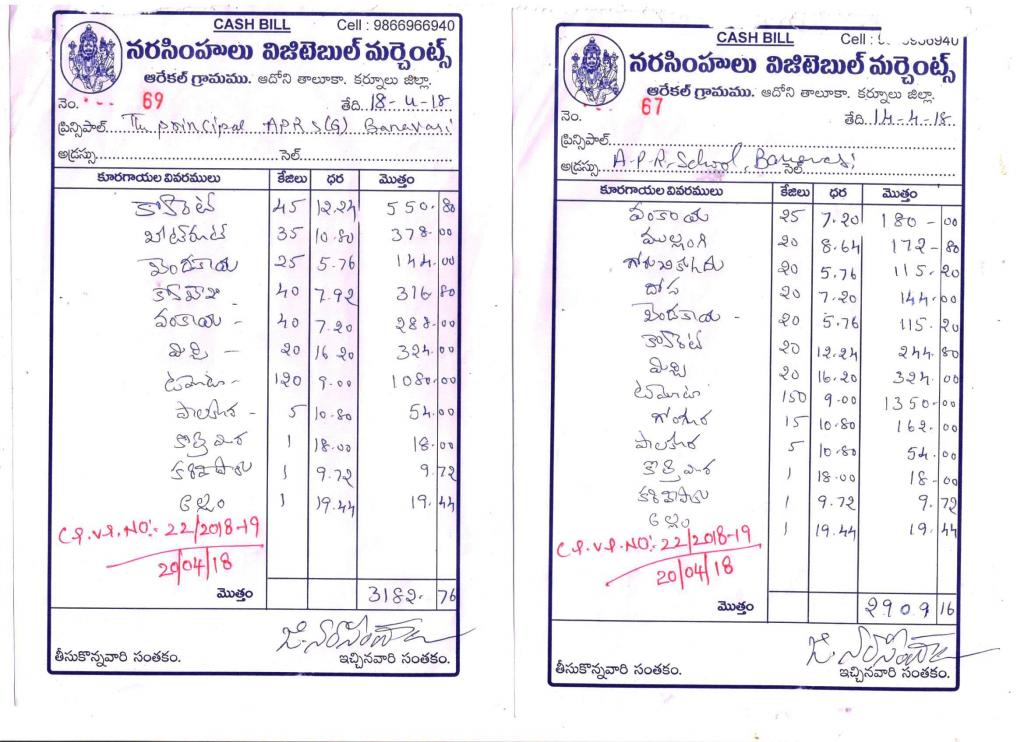 CASH BILL Cell : 9866966940
నరసింహులు విజిటెబుల్ మర్చెంట్స్
ఆరేకల్ గ్రామము. ఆదోని తాలూకా. కర్నూలు జిల్లా.
నెం. 69 తేది. 18-4-18
ప్రిన్సిపాల్. The principal APRS(G) Banavasi
అడ్రస్సు. సెల్.
కూరగాయల వివరములు కేజిలు ధర మొత్తం
క్యారెట్ 45 12.24 550.80
బీట్‌రూట్ 35 10.80 378.00
బెండకాయ 25 5.76 144.00
40 7.92 316 80
వంకాయ - 40 7.20 288.00
మిర్చి - 20 16 20 324.00
టమోటా - 120 9.00 1080.00
పాలకూర - 5 10.80 54.00
కొత్తిమీర 1 18.00 18.00
కరివేపాకు 1 9.72 9.72
అల్లం 1 19.44 19.44
C.P.V.P.NO: 22/2018-19
20/04/18
మొత్తం 3182.76
తీసుకొన్నవారి సంతకం. ఇచ్చినవారి సంతకం.
CASH BILL Cell :
నరసింహులు విజిటెబుల్ మర్చెంట్స్
ఆరేకల్ గ్రామము. ఆదోని తాలూకా. కర్నూలు జిల్లా.
నెం. 67 తేది. 14-4-18
ప్రిన్సిపాల్.
అడ్రస్సు. A.P.R. School, Banavasi సెల్.
కూరగాయల వివరములు కేజిలు ధర మొత్తం
వంకాయ 25 7.20 180-00
ముల్లంగి 20 8.64 172-80
20 5.76 115.20
దోస 20 7.20 144.00
బెండకాయ - 20 5.76 115.20
క్యారెట్ 20 12.24 244.80
మిర్చి 20 16.20 324.00
టమోటా 150 9.00 1350.00
గోంగూర 15 10.80 162.00
పాలకూర 5 10.80 54.00
కొత్తిమీర 1 18.00 18-00
కరివేపాకు 1 9.72 9.72
అల్లం 1 19.44 19.44
C.P.V.P.NO: 22/2018-19
20/04/18
మొత్తం 2909 16
తీసుకొన్నవారి సంతకం. ఇచ్చినవారి సంతకం.